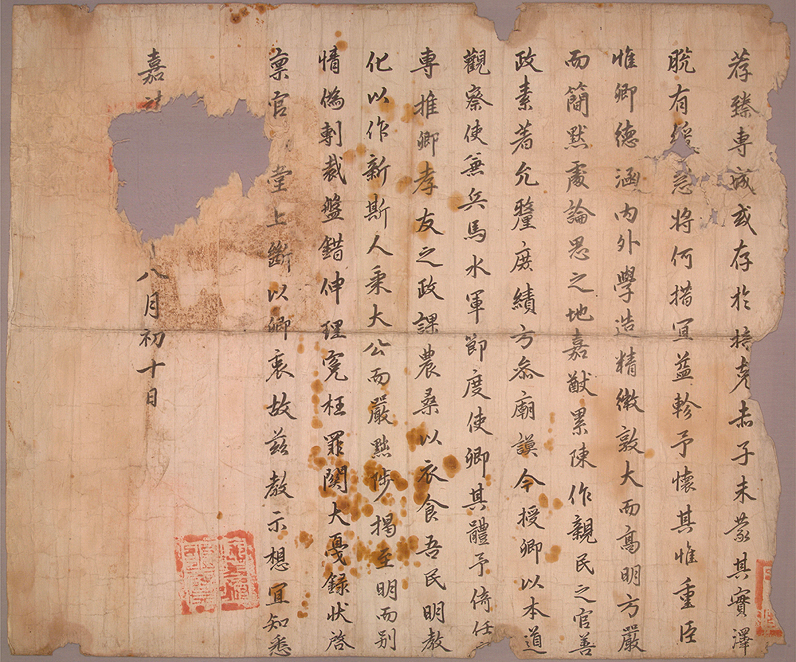 荐臻專城或存於掊克赤子未蒙其實澤
脫有緩急將何措宜益軫予懷其惟重臣
惟卿德涵內外學造精微敦大而高明方嚴
而簡默處論思之地嘉猷累陳作親民之官善
政素著允釐庶績方參廟謨今授卿以本道
觀察使兼兵馬水軍節度使卿其體予倚任
專推卿孝友之政課農桑以衣食吾民明敎
化以作新斯人秉大公而嚴黜陟揭至明而別
情僞剸裁盤錯伸理冤枉罪關大辟錄狀啓
稟官 堂上斷以卿裏故玆敎示想宜知悉
嘉 八月初十日